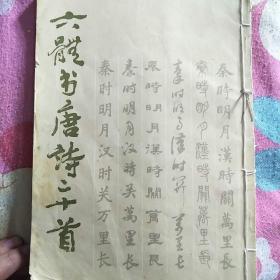 六體书唐詩二十首
秦時明月漢時關萬里長
秦時明月漢時關萬里長
秦时明月漢时關萬里長
秦時明月漢時關萬里長
秦時明月漢时关萬里長
秦时明月汉时关万里长